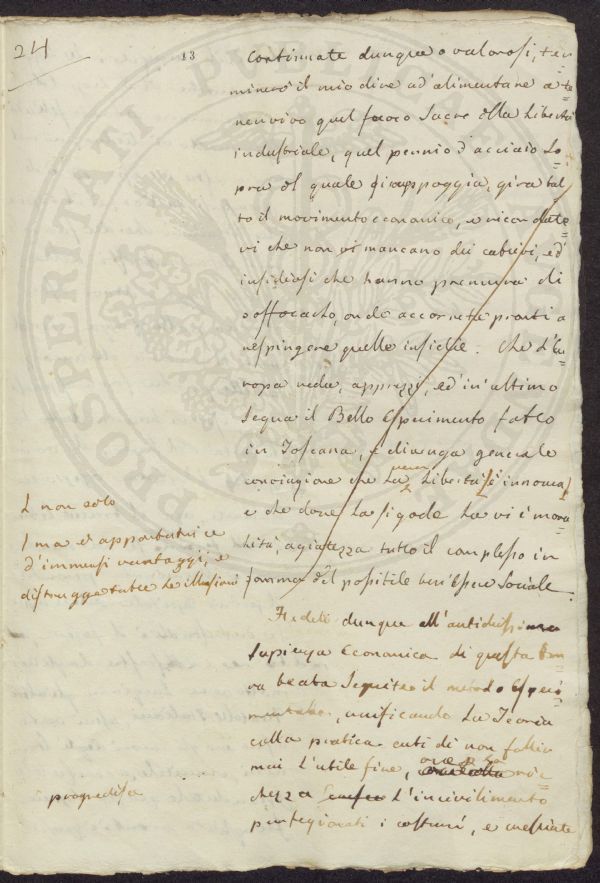 24
13
Continuate dunque o valorosi, ter=
minerò il mio dire ad' alimentare a te=
ner vivo quel fuoco Sacro della Libertà
industriale, quel pernio d'acciaio So=
pra del quale poggia, gira tut
to il movimento economico, e ricordate=
vi che non vi mancano dei cattivi, ed'
insidiosi che hanno premura di
soffocarlo, onde accorrete pronti a
respingere quelle insidie. Che l'Eu=
ropa veda, apprezzi, ed' in' ultimo
segua il Bello Esperimento fatto
in Toscana, e divenga generale
convinzione che La vera Libertà è innocua
e che dove La si gode La vi è mora
lità, agiatezza tutto il complesso in
somma del possibile ben'essere Sociale.
L non solo
ma è apportatrice
d'immensi vantaggi, e
distrugga tutte le illusioni
Fedeli dunque all'antichissima
Sapienza Economica di questa ter
ra beata Seguitre il metodo Speri
mentale, unificando La Teoria
colla pratica enti di non fallir
mai l'utile fine, ove la ric
chezza l'incivilimento
progredisca
perfezionati i costumi, e mediante